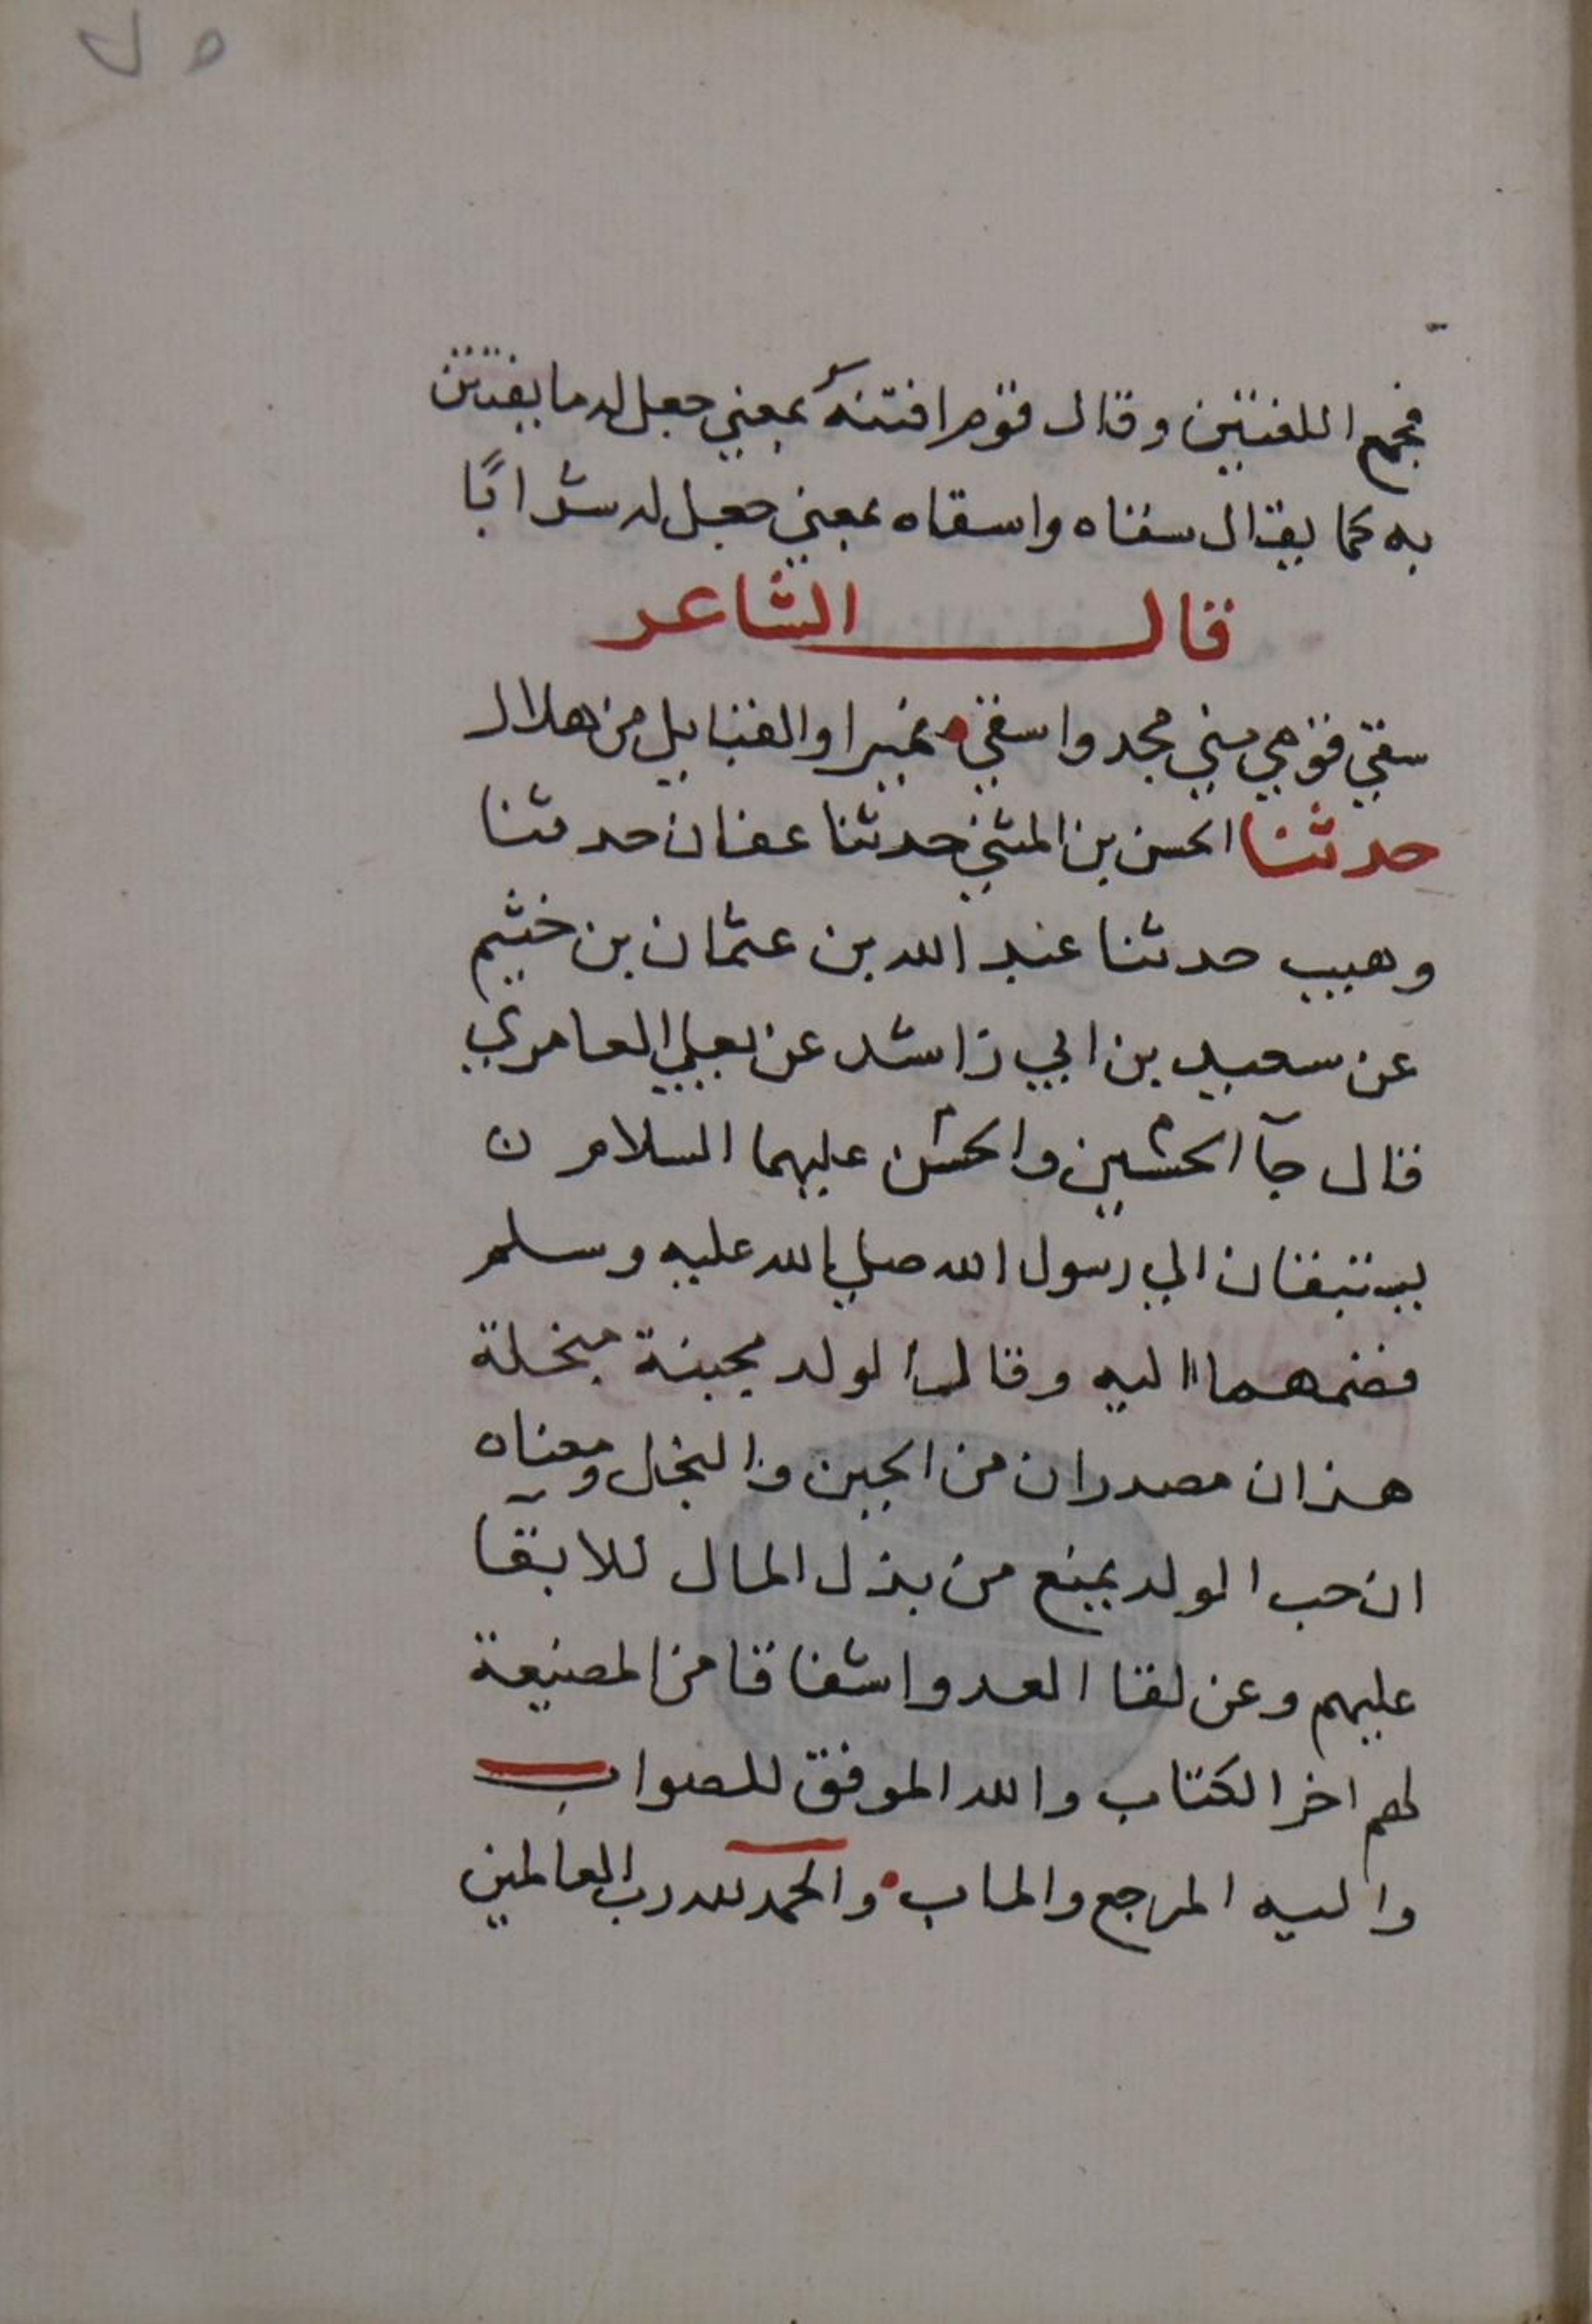 فجمع اللغتين وقال قوم افتنه بمعني جعل له ما يفتتن
به كما يقال سقاه واسقاه بمعني جعل له شرابًا
قال الشاعر
سقي قومي بني مجد واسقي نميرا والقبايل من هلال
حدثنا الحسن بن المثني حدثنا عفان حدثنا
وهيب حدثنا عبد الله بن عثمان بن خثيم
عن سعيد بن ابي راشد عن يعلي العامري
قال جآ الحسين والحسن عليهما السلام ن
يستبقان الي رسول الله صلي الله عليه وسلم
فضمهما اليه وقال الولد مجبنة مبخلة
هذان مصدران من الجبن والبخل ومعناه
ان حب الولد يمنع من بذل المال للابقآ
عليهم وعن لقا العدو اشفاقا من المضيعة
لهم اخر الكتاب والله الموفق للصواب
واليه المرجع والماب والحمد لله رب العالمين